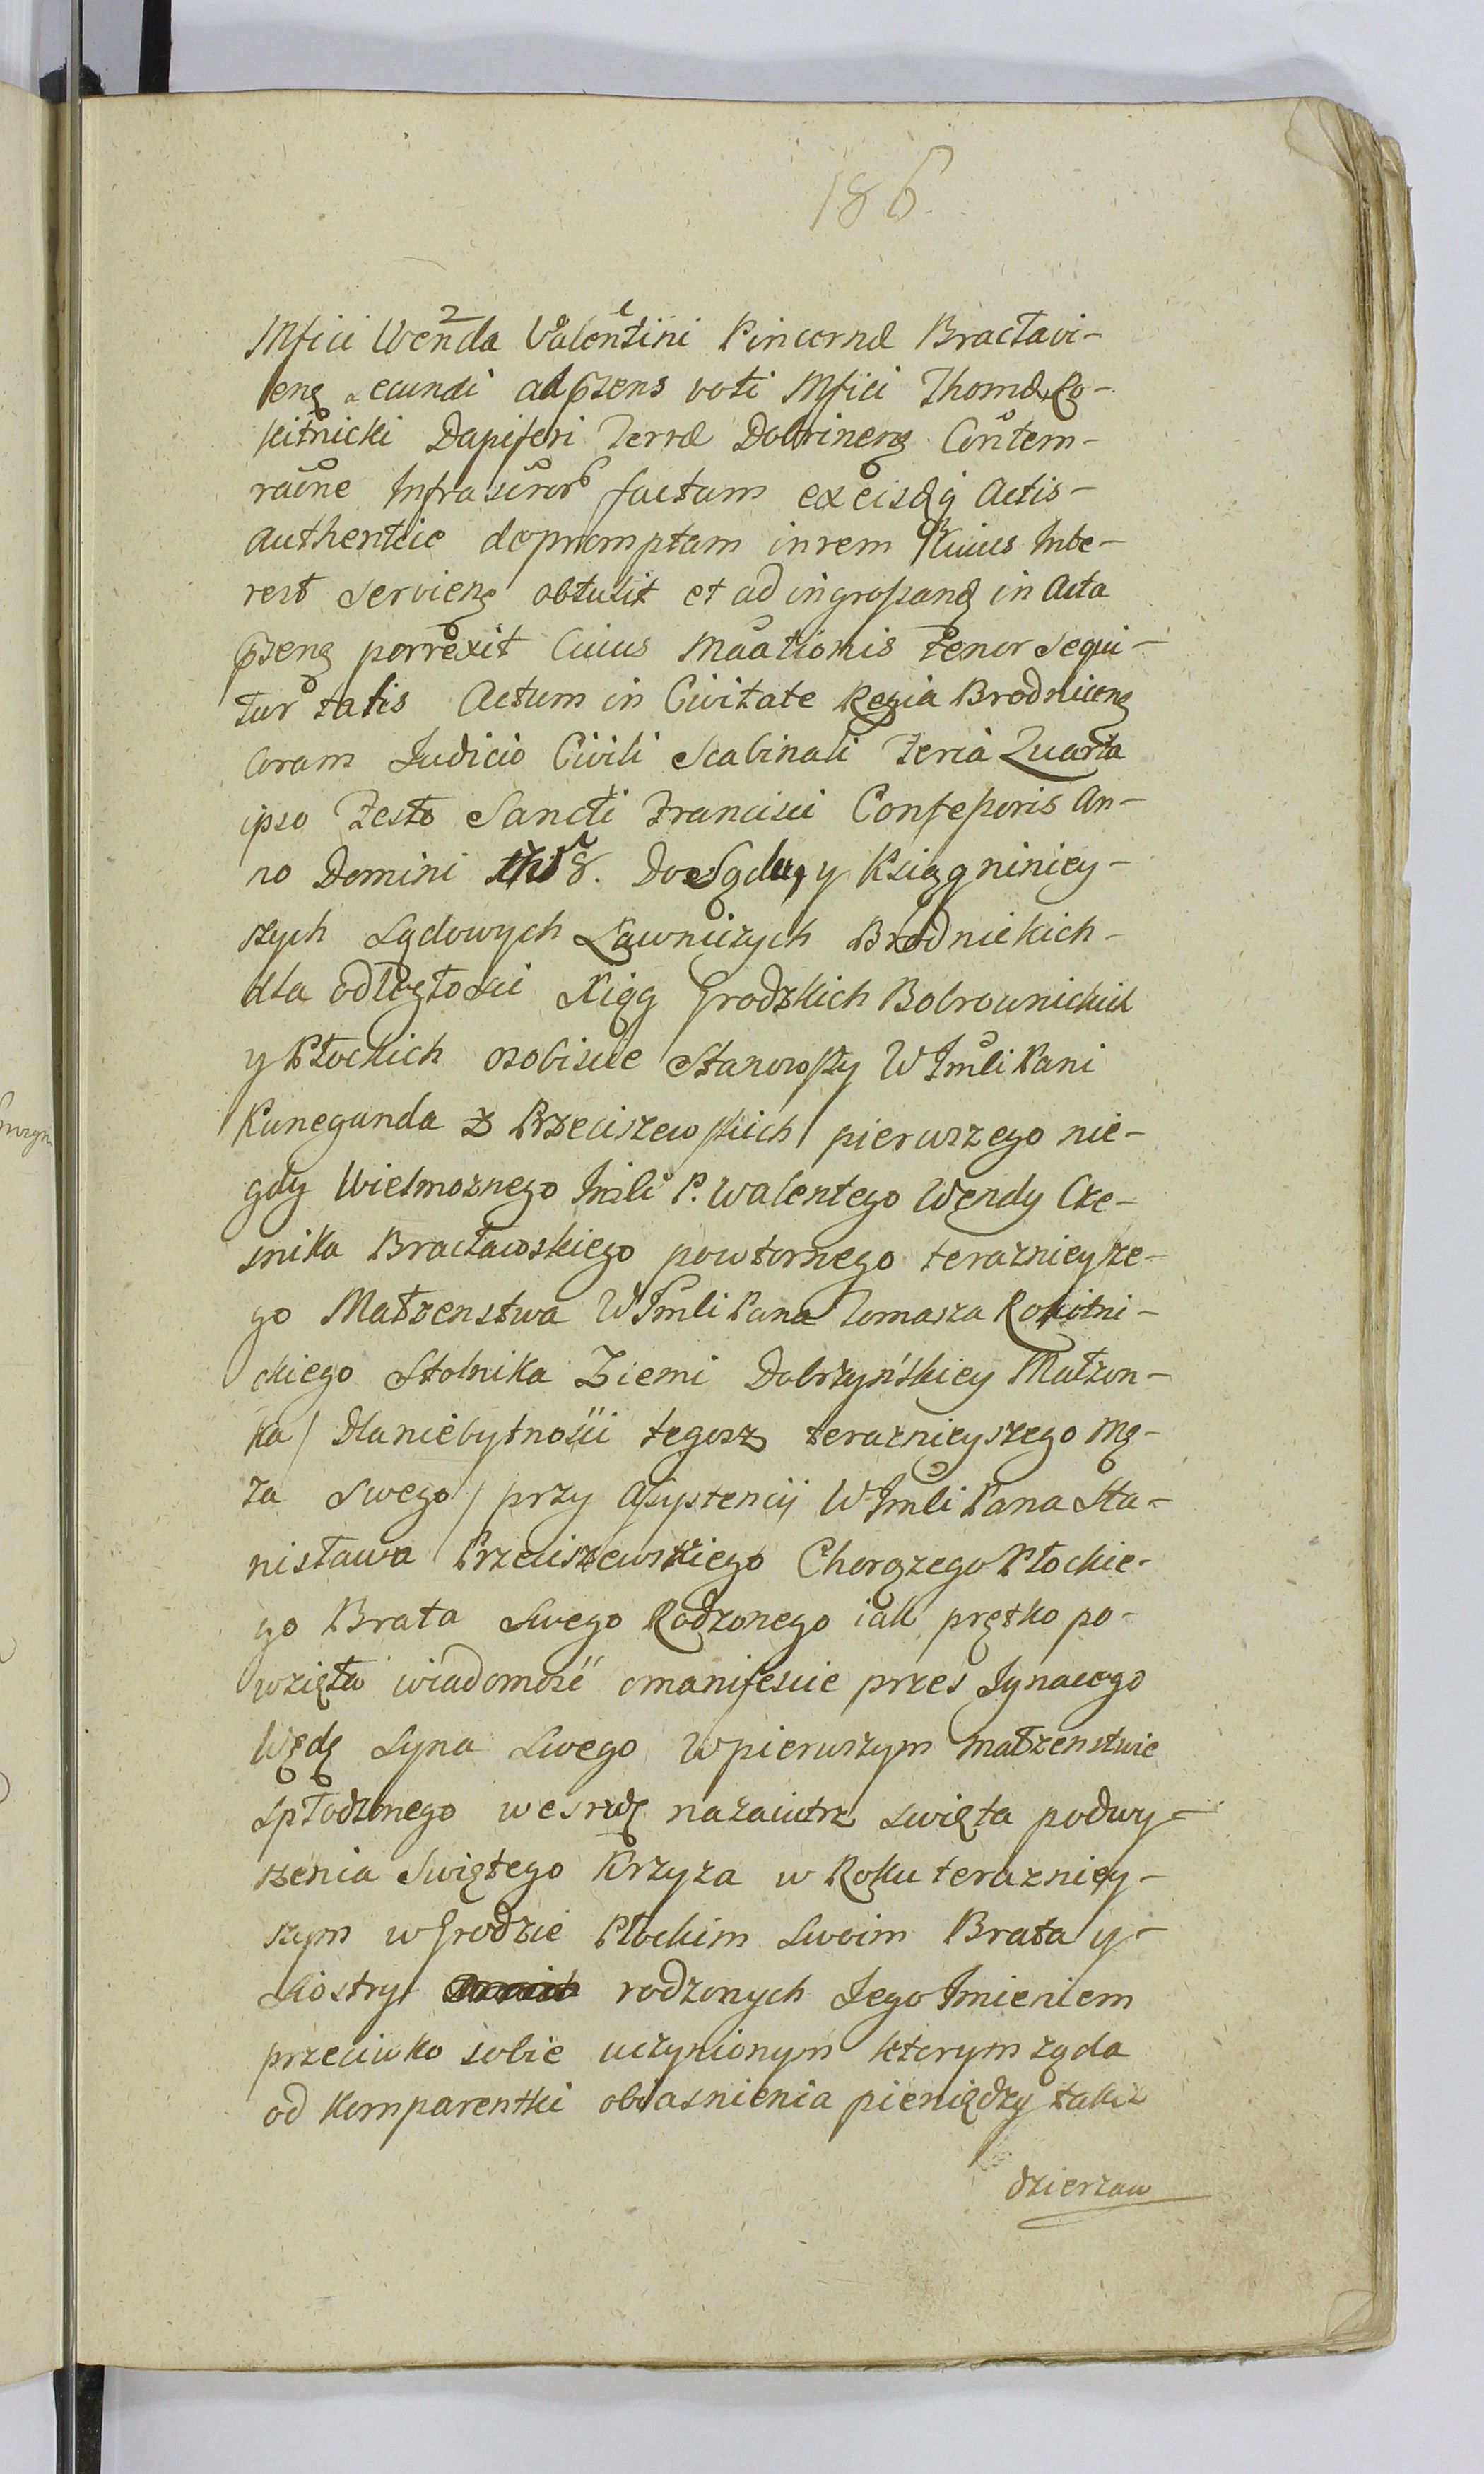 186.
Mfici Wenda Valentini Pincernæ Bractavi-
en͠s secundi ad p͠sens voti Mfici Thomæ Ro-
kitnicki Dapiferi Terræ Dobrinen͠s Contem-
raöne Infrascror͠ factam ex eisdq̃ Actis
authentice depromptam in rem cuius Inte-
rest servien͠s obtulit et ad ingrossand͠ in Acta
p͠sen͠s porrexit Cuius Maationis tenor sequi-
tur talis Actum in Civitate Regia Brodnicen͠s
Coram Iudicio Civili Scabinali Feria Quarta
ipso Festo Sancti Francisci Confessoris An-
no Domini Do Sądu, y Ksiąg niniey-
szych Sądowych Ławniczych Brodnickich
dla odległosci Xiąg Grodzkich Bobrownickich
y Płockich osobiscie Stanowszy W Jmci Pani
Kunegunda z Przeciszewskich pierwszego nie-
gdy Wielmoznego Jmci P. Walentego Wendy Cze-
snika Bracławskiego powtornego teraznieysze-
go Małzenstwa W Jmci Pana Tomasza Rokitni-
ckiego Stolnika Ziemi Dobrzyńskiey Małzon-
ka / Dla niebytności tegosz teraznieyszego Mę-
za Swego / przy Assystencij W Jmci Pana Sta-
nisława Przeciszewskiego Chorązego Płockie-
go Brata Swego Rodzonego iak prętko po-
wzięła wiadomość o manifescie przes Jgnacego
Wędę Syna Swego w pierwszym małzenstwie
spłodzonego we srzodę nazaiutrz swięta podwy-
szenia Swiętego Krzyza w Roku teraznieÿ-
szym w Grodzie Płockim Swoim Brata y
Siostry rodzonych Jego Jmieniem
przeciwko sobie uczynionym ktorym ząda
od Komparentki obiasnienia pieniędzy takze
dzierzaw